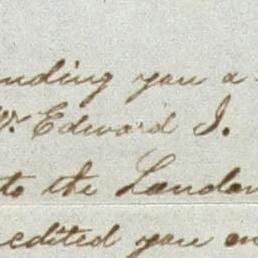 nding you a
Wr. Edward J.
to the London
edited you on